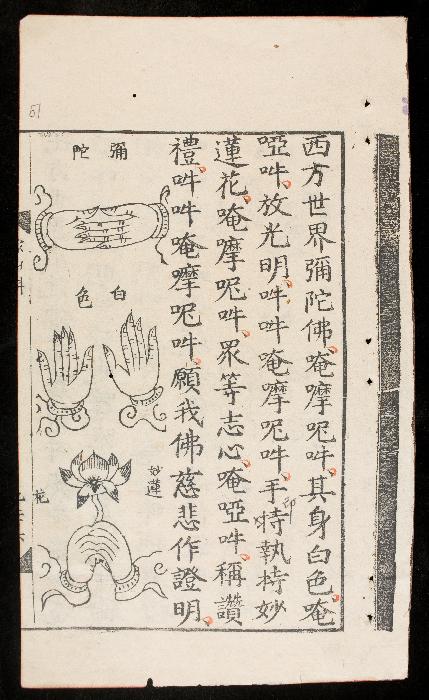 西方世界彌陀佛唵摩呢吽其身白色唵
啞吽放光明吽吽唵摩呢吽手時執持妙
印
蓮花唵摩呢吽眾等志心唵啞吽稱讚
禮吽吽唵摩呢吽願我佛慈悲作證明
彌陀
白色
妙蓮
花